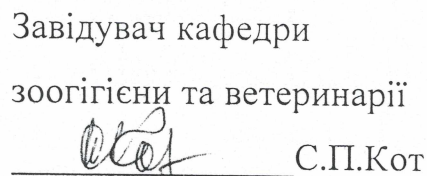 Завідувач кафедри
зоогігієни та ветеринарії
С.П.Кот